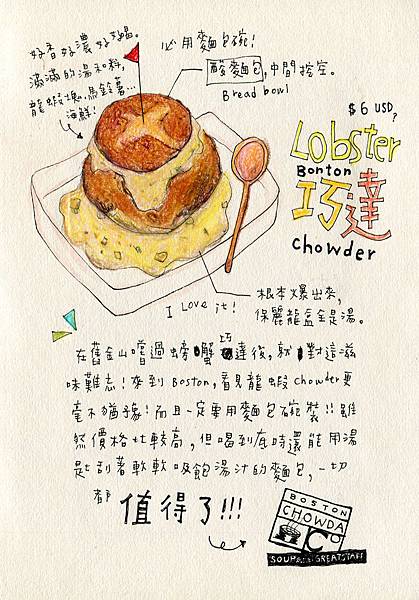 好香好濃好好喝。
滿滿的湯和料，
龍蝦塊、馬鈴薯...
海鮮!
必用麵包碗!
酸麵包,中間挖空。
Bread bowl
$6 USD
?
Lobster
Bonton
巧達
chowder
根本爆出來，
保麗龍盒全是湯。
I Love it!
在舊金山嚐過螃蟹巧達後,就對這滋
味難忘!來到Boston,看見龍蝦chowder更
毫不猶豫!而且一定要用麵包碗裝!!雖
然價格比較高,但喝到底時還能用湯
匙刮著軟軟吸飽湯汁的麵包,一切
都 值得了!!!
BOSTON
CHOWDA
Co
SOUP
GREAT STAFF